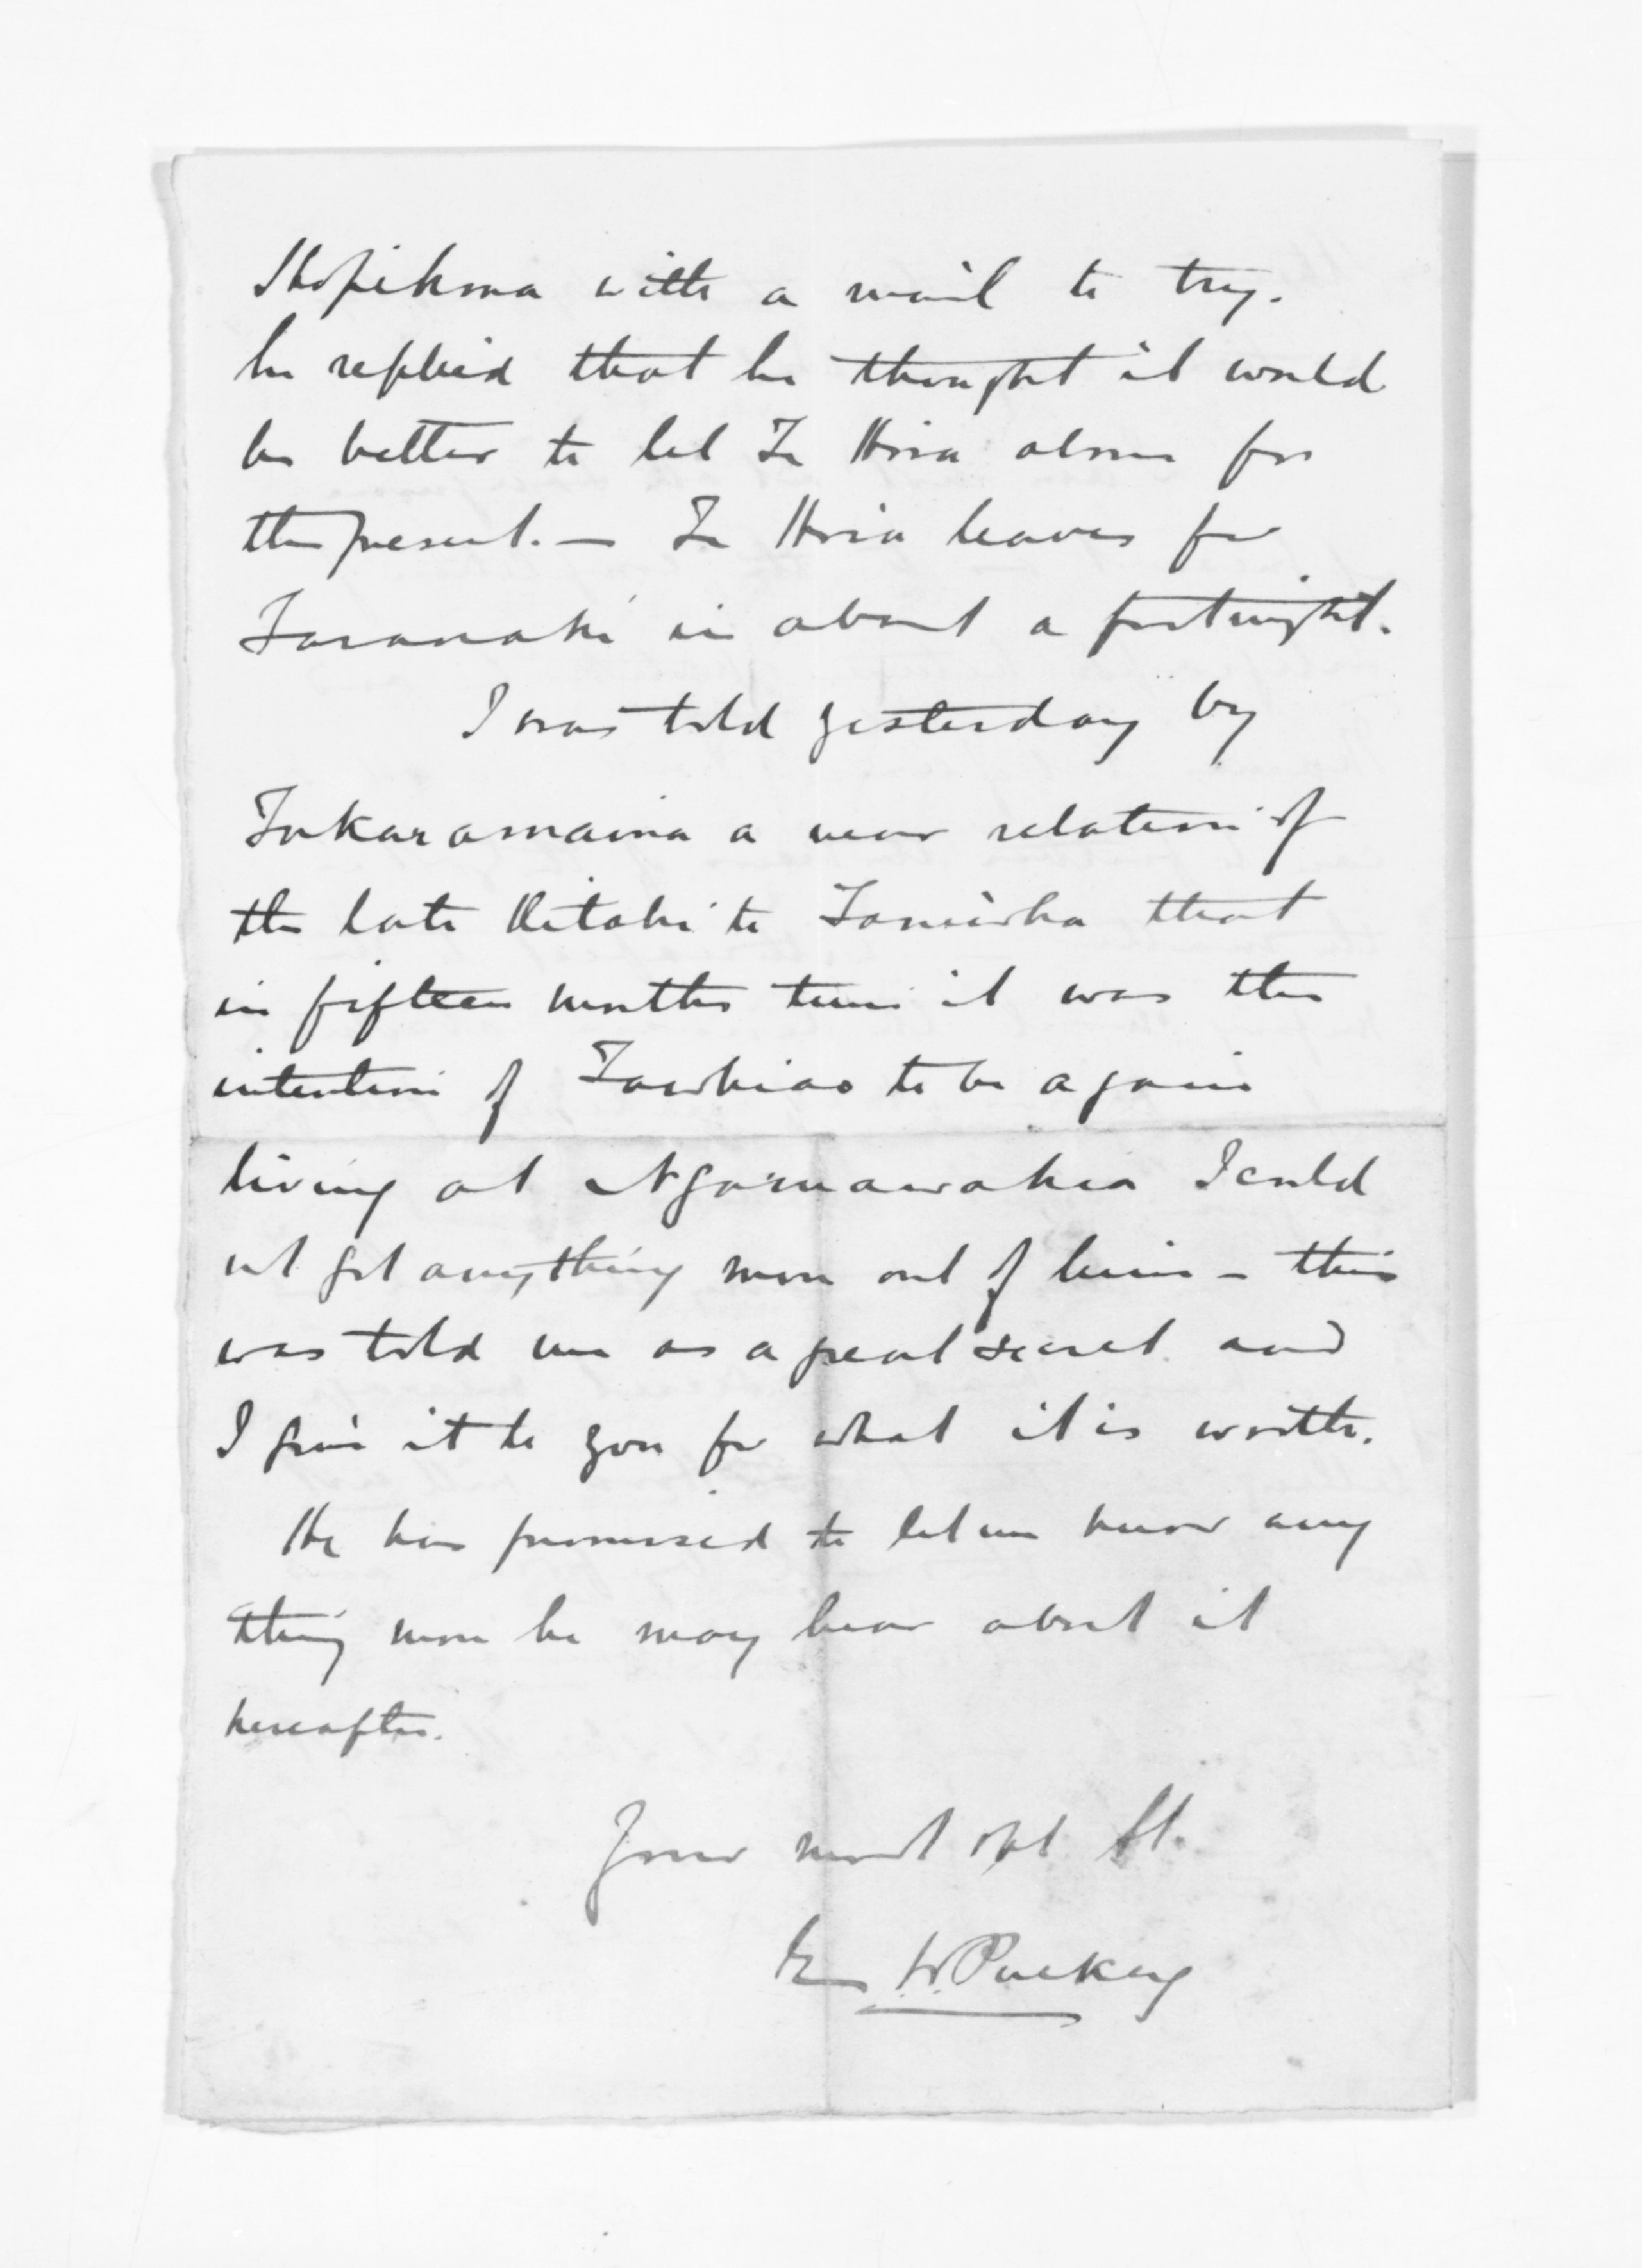 with a mail to try.
he replied that he thought it would
be better to let Te Hira alone for
the present. — Te Hira leaves for
Taranaki in about a fortnight.
I was told yesterday by
Tukaramaina a near relation of
the late Kitahi te Taniwha that
in fifteen months time it was the
intention of Tawhiao to be again
living at Ngaruawahia I could
not get anything more out of him - this
was told me as a great secret and
I give it to you for what it is worth.
He has promised to let me know any
thing more he may hear about it
hereafter.
Your most obt St.
E. W. Puckey